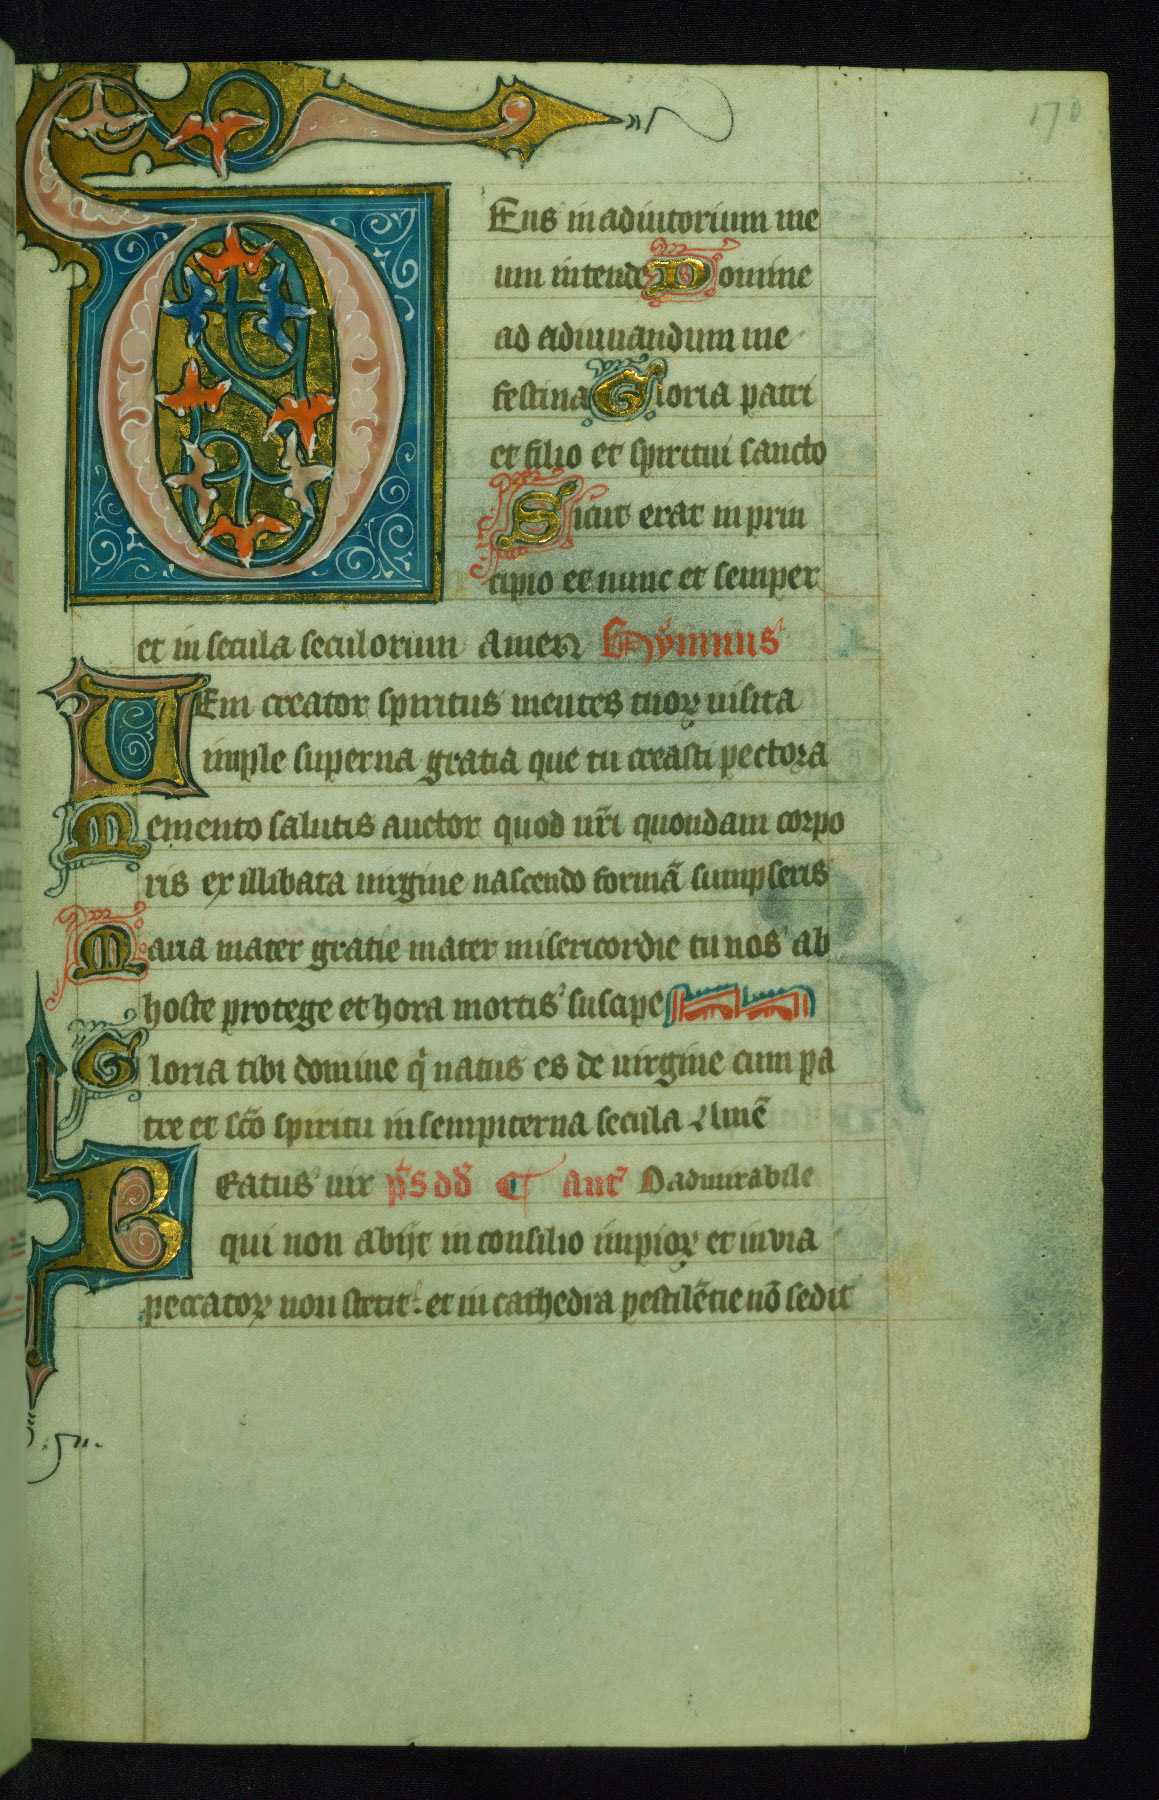 170
DEus in adiutorium me
um intende Domine
ad adiuuandum me
festina Gloria patri
et filio et spiritui sancto
Sicut erat in prin
cipio et nunc et semper
et in secula seculorum amen Hymnus
UEni creator spiritus mentes tuoꝝ uisita
imple superna gratia que tu creasti pectora
Memento salutis auctor quod nr̃i quondam corpo
ris ex illibata uirgine nascendo formã sumpseris
Maria mater gratie mater misericordie tu nos ab
hoste protege et hora mortis suscipe
Gloria tibi domine qͥ natus es de uirgine cum pa
tre et sc̃o spiritu in sempiterna secula Amẽ
BEatus uir p̃s dd̃ ant̾ O admirabile
qui non abijt in consilio impioꝝ et in via
peccatoꝝ non stetit et in cathedra pestilẽtie nõ sedit